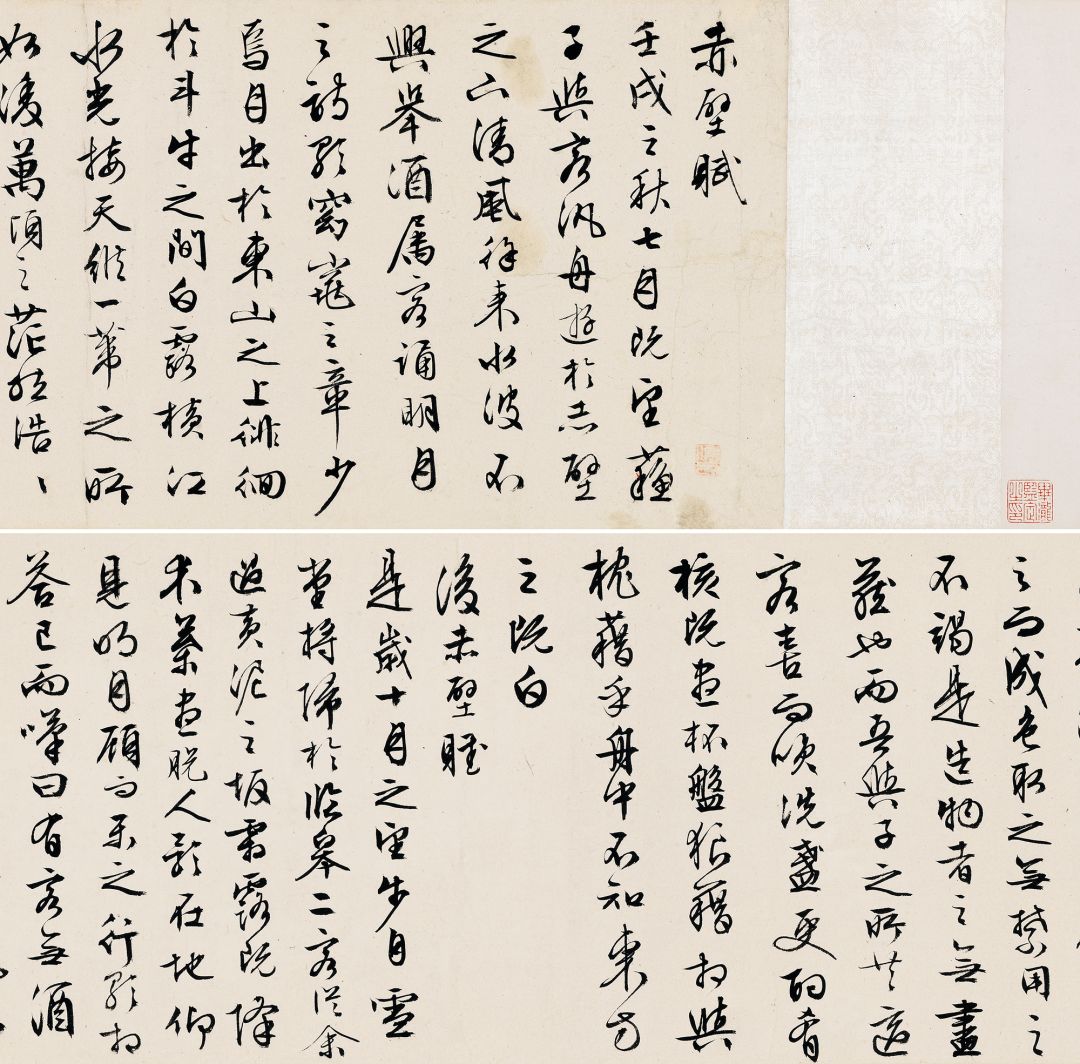 赤壁賦
壬戌之秋七月既望蘇
子與客汎舟遊於赤壁
之下清風徐来水波不
興舉酒属客誦明月
之詩歌窈窕之章少
焉月出於東山之上徘徊
於斗牛之間白露横江
水光接天縱一葦之所
如凌萬頃之茫然浩〻
之而成色取之無禁用之
不竭是造物者之無盡
藏也而吾與子之所共適
客喜而笑洗盞更酌肴
核既盡杯盤狼藉相與
枕藉乎舟中不知東方
之既白
後赤壁賦
是歲十月之望步自雪
堂將歸於臨皋二客從余
過黃泥之坂霜露既降
木葉盡脫人影在地仰
見明月顧而樂之行歌相
答已而嘆曰有客無酒